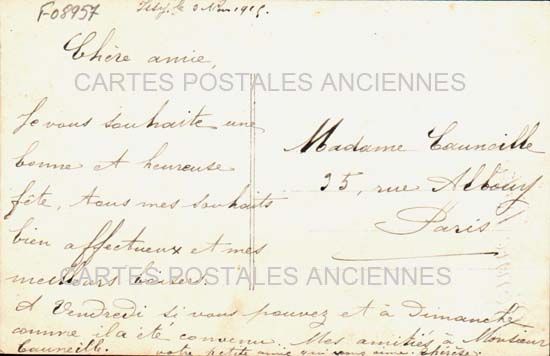 F-08957
le 3 Nov 1915.
Chère amie,
CARTES POSTALES ANCIENNES
Je vous souhaite une
bonne et heureuse
fête, tous mes souhaits
bien affectueux et mes
meilleurs baisers.
Madame Cauneille
35, rue Albouy
Paris
CARTES POSTALES ANCIENNES
A Vendredi si vous pouvez et à Dimanche
comme il a été convenu. Mes amitiés à Monsieur
Cauneille. votre petite amie qui vous aime. Thérèse.